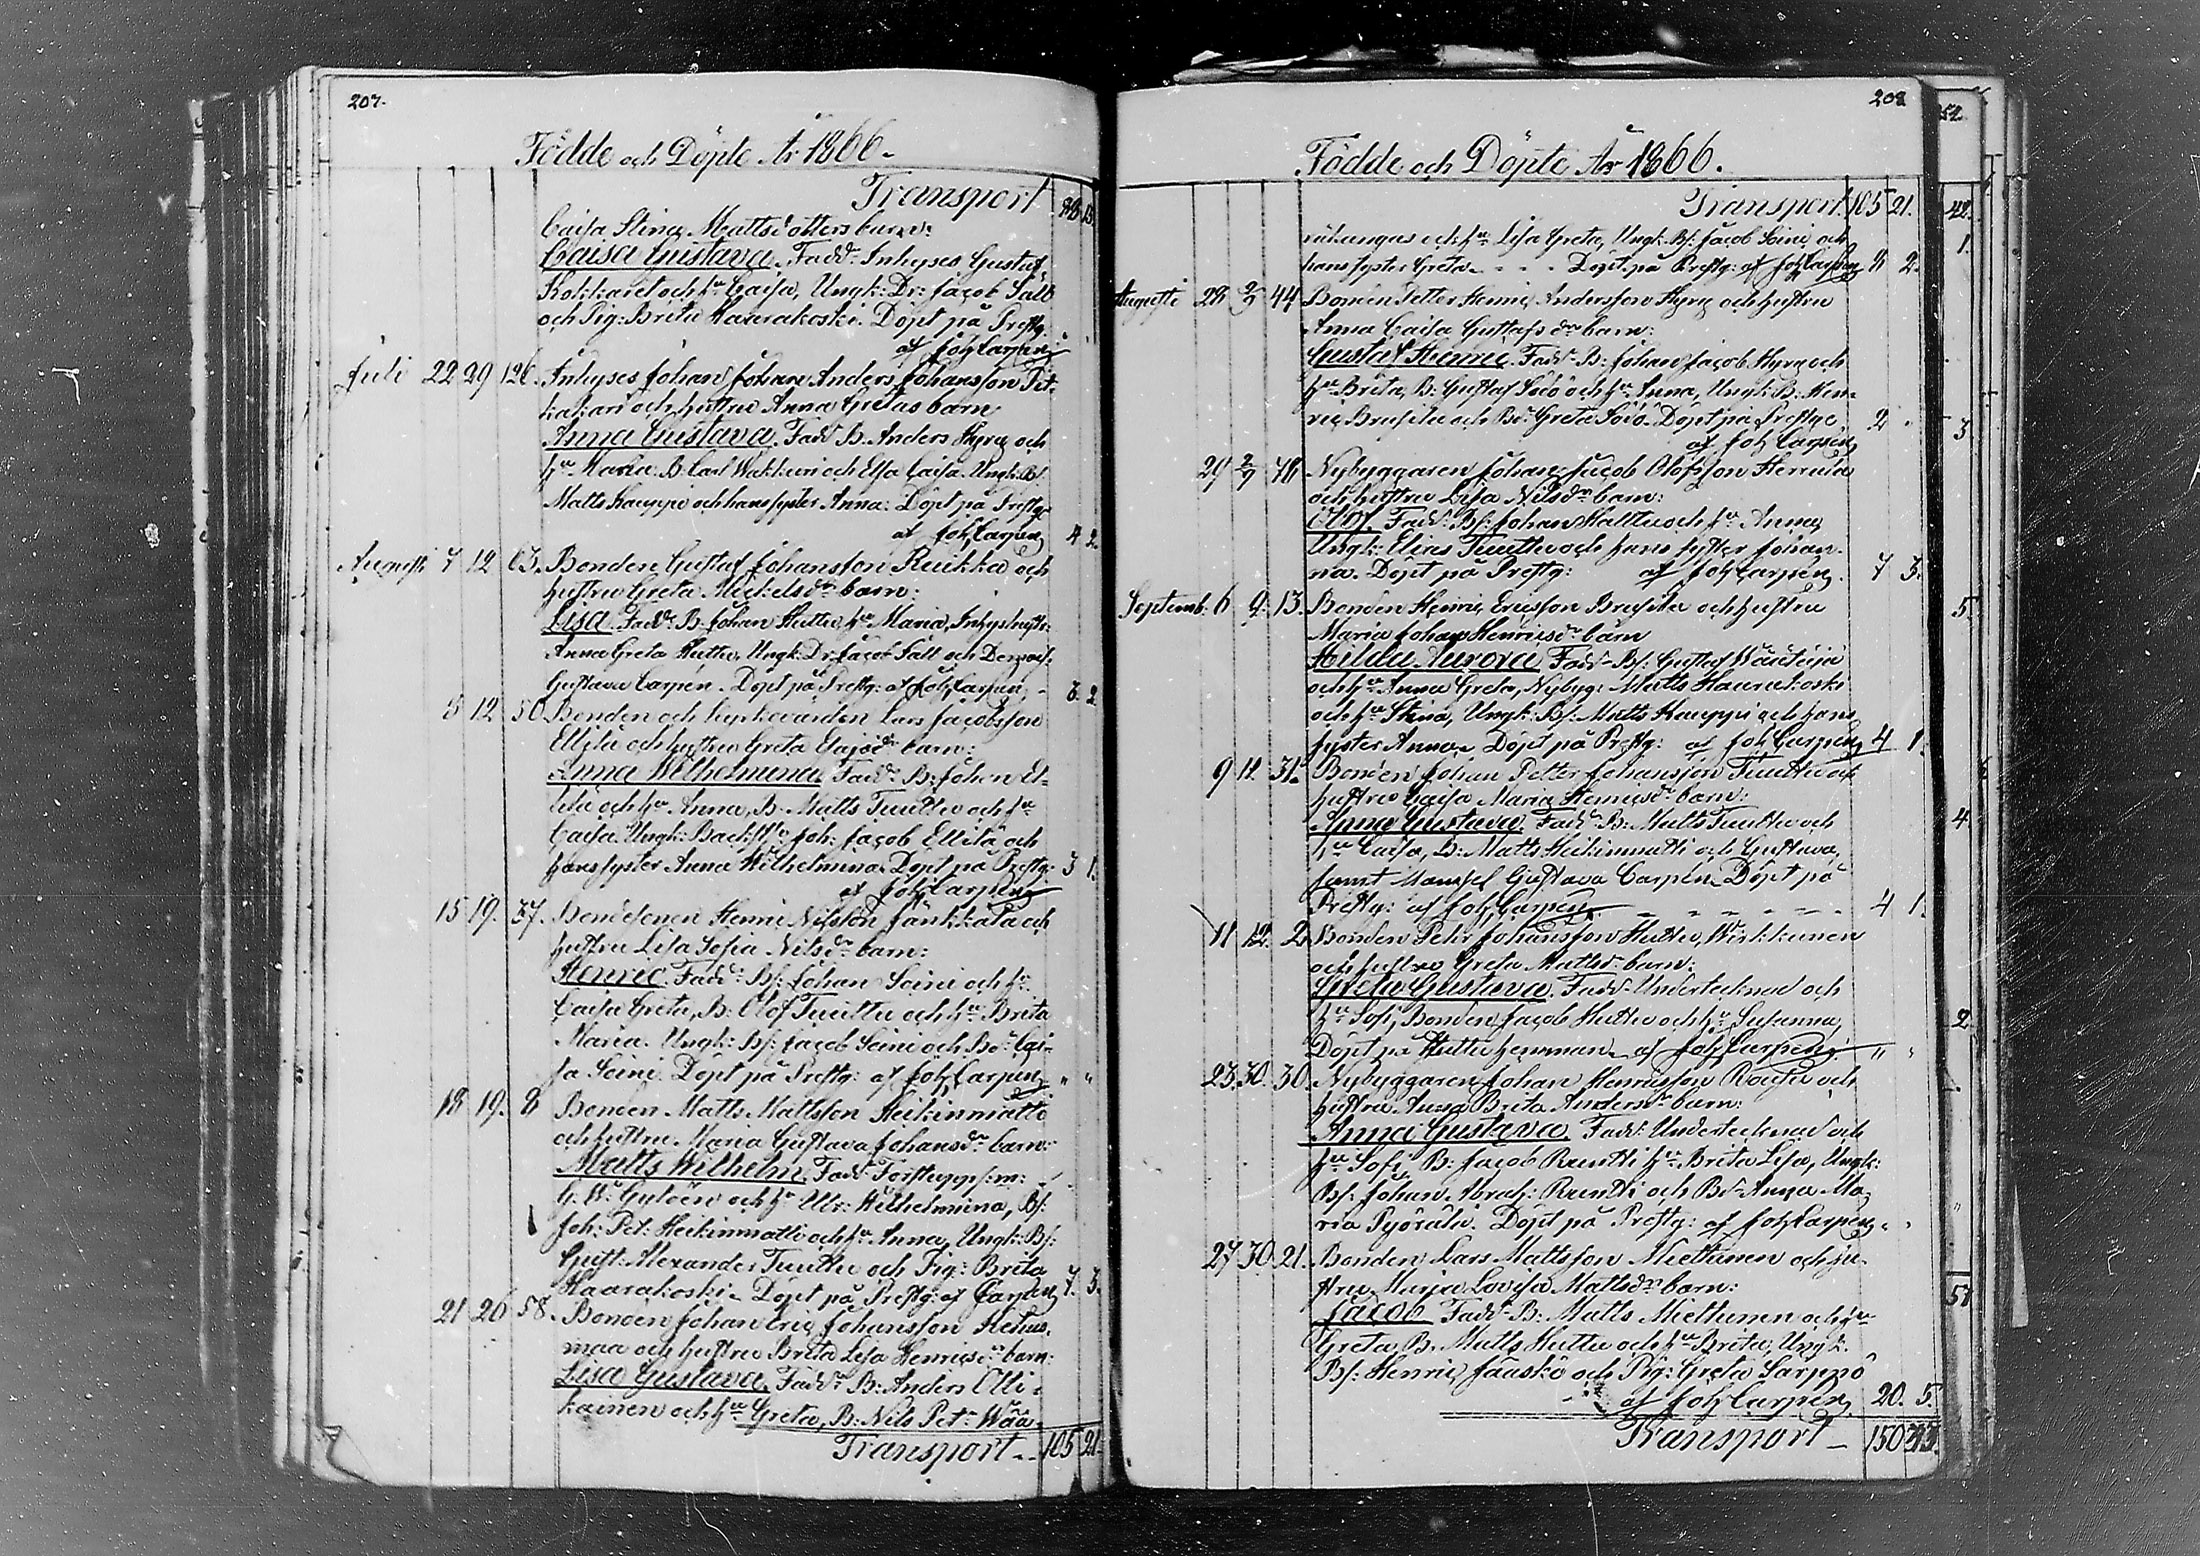 207.
Födde och Döpte År 1866.
Transport
Caisa Stina Mattsdotters barn:
Caisa Gustava. Fadd: Inhyses Gustaf
och hu Caisa, Ungk: Dr: Jacob Sält
och Pig: Brita Haarakoski. Döpt på Prestg:
af Joh Carpen
Juli 22 29 126. Inhyses Johan Johan Anders Johansson Pit-
kakari och hustru Anna Gretas barn
Anna Gustava. Fadd B. Anders Hyrq och
hu Maria. B. Carl Wakkuri och Elsa Caisa. Ungk: B/:
Matts Kauppi och hans syster Anna: Döpt på Prestg:
af Joh Carpen 4 2
Augusti 7 12 63. Bonden Gustaf Johansson Ruikka och
hustru Greta Mickelsdr barn:
Lisa. Fadd: B. Johan Huttu, hu Maria, Inhyshustr:
Anna Greta Huttu. Ungk: Dr. Jacob Sält och Demois:
Gustava Carpen. Döpt på Prestg: af Joh Carpen 3. 2
8 12 50. Bonden och Kyrkovärden Lars Jacobsson
Ellilä och hustru Greta barn:
Anna Wilhelmina Fadd: B: Johan El-
lilä och hu Anna, B. Matts Tuuttu och hu
Caisa. Ungk: Joh: Jacob Ellilä och
hans syster Anna Wilhelmina. Döpt på Prestg: 3 1.
af Joh Carpen
15 19. 37. Bondesonen Henric Nilsson Jänkkälä och
hustru Lisa Sofia Nilsdr barn:
Henric. Fadd: B/: Johan Soini och hu
Caisa Greta, B: Olof Tuuttu och hu Brita
Maria. Ungk: B/: Jacob Soini och Bd: Cai-
sa Soini. Döpt på Prestg: af Joh Carpen " "
18 19. 8 Bonden Matts Mattsson Heikinmatti
och hustru Maria Gustava Johansdr barn:
Matts Wilhelm. Fadd:
G. W: Gyldén och hu Ulr: Wilhelmina, B/:
Joh: Pet: Heikinmatti och hu Anna, Ungk: B/:
Gust: Alexander Tuuttu och Pig: Brita
Haarakoski. Döpt på Prestg: af Carpen 7. 3.
21 26 58. Bonden Johan Eric Johansson Hehus-
maa och hustru Brita Lisa Henricsdr barn:
Lisa Gustava. Fadd: B: Anders Olli-
kainen och hu Greta, B: Nils Petr Wää-
Transport 105 21.
208
Födde och Döpte År 1866.
Transport 105 21.
rükangas och hu Lisa Greta, Ungk: B/: Jacob Soini och
hans syster Greta - - - Döpt på Prestg: af Joh Carpen 8 2.
Augusti 28 2/9 44 Bonden Petter Henric Andersson Hyrq och hustru
Anna Caisa Gustafsdr barn:
Gustaf Henric. Fadd: B: Johan Jacob Hyrq och
hu Brita, B: Gustaf Soio och hu Anna, Ungk: B: Hen-
ric Brusila och Bd: Greta Soio. Döpt på Prestg: 2 "
af Joh Carpen
29 2/9 78 Nybyggaren Johan Jacob Olofsson Herrala
och hustru Lisa Nilsdr barn:
Olof. Fadd: B/: Johan Kalttu och hu Anna,
Ungk: Elias Tuuttu och hans syster Johan-
na. Döpt på Prestg: af Joh Carpen. 7 3.
Septemb: 6 9. 13. Bonden Henric Ericsson Brusila och hustru
Maria Johan Henricsdr barn
Hilda Aurora Fadd: B/: Gustaf
och hu Anna Greta, Nybyg: Matts Haarakoski
och hu Stina, Ungk: B/: Matts Kauppi och hans
syster Anna. Döpt på Prestg: af Joh Carpen 4 1.
9 12 31. Bonden Johan Petter Johansson Tuuttu och
hustru Caisa Maria Henricsdr barn:
Anna Gustava. Fadd: B: Matts Tuuttu och
hu Caisa, B: Matts Heikinmatti och Gustava,
samt Mamsel Gustava Carpén. Döpt på
Prestg: af Joh Carpen 4 1.
11 12. 2. Bonden Petr Johansson Huttu, Wirkkunen
och hustru Greta Mattsdr barn:
Greta Gustava. Fadd: Undertecknad och
hu Sofi, Bonden Jacob Huttu och hu Susanna,
Döpt på Huttu hemman af Joh Carpen " "
23. 30. 30. Nybyggaren Johan Henricsson Rautu och
hustru Anna Brita Andersdr barn:
Anna Gustava. Fadd: Undertecknad och
hu Sofi, B: Jacob Ruutti hu Brita Lisa, Ungk:
B/: Johan Abrah: Ruutti och Bd: Anna Ma-
ria Pyörälä. Döpt på Prestg: af Joh Carpen " "
27 30. 21. Bonden Lars Mattsson Miettunen och hu-
stru Maria Lovisa Mattsdr barn:
Jacob Fadd: B: Matts Miettunen och hu
Greta, B. Matts Huttu och hu Brita, Ungk.
B/: Henric Jääskö och Pig: Greta Särppö
af Joh Carpen 20. 5.
Transport 150
42.
1.
3
5.
4.
2.
"
57